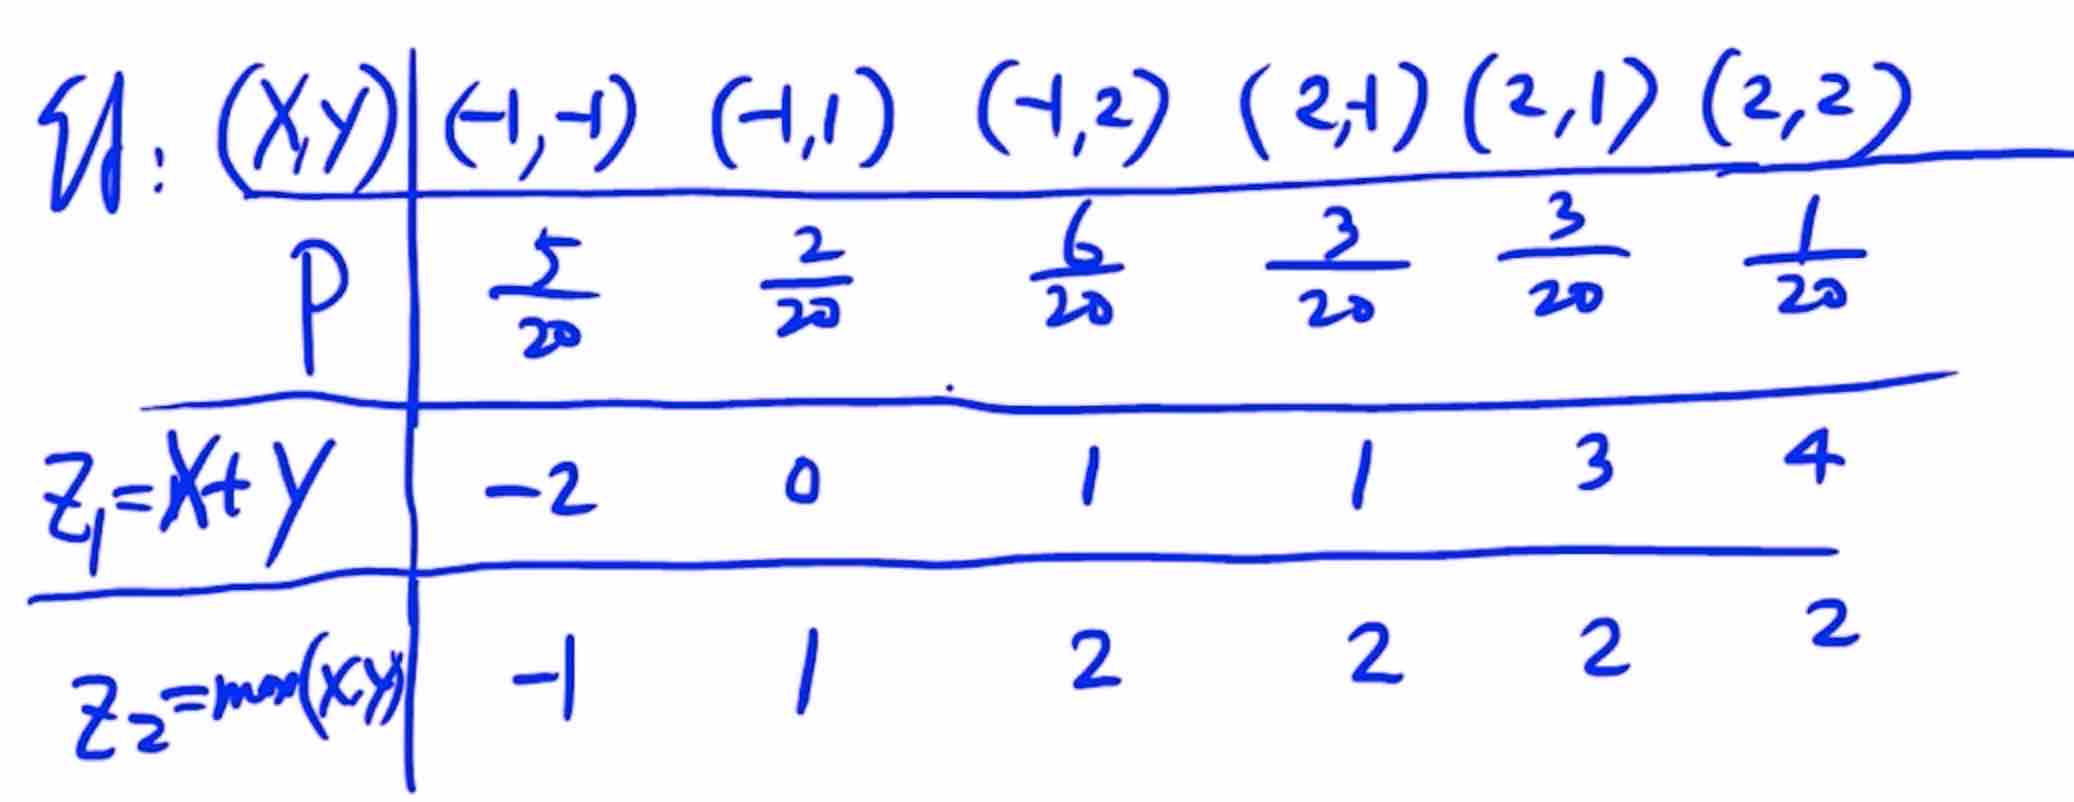 则: (X,Y) (-1,-1) (-1,1) (-1,2) (2,-1) (2,1) (2,2)
P 5/20 2/20 6/20 3/20 3/20 1/20
Z₁=X+Y -2 0 1 1 3 4
Z₂=max(X,Y) -1 1 2 2 2 2